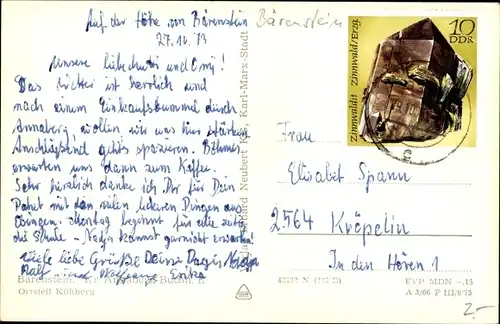 Auf der Höhe von Bärenstein
27.10.73
Bärenstein
Unsere liebe und Omi!
Das Wetter ist herrlich und
nach einem Einkaufsbummel durch
Annaberg wollen wir uns hier stärken.
Anschließend geht's spazieren. Böhmes
erwarten uns dann zum Kaffee.
Sehr herzlich danke ich Dir für Dein
Paket mit den vielen leckeren Dingen aus
Montag beginnt für alle
die Schule - Nadja kann's garnicht erwarten!
Viele liebe Grüße Deine Nadja
Ralf und Wolfgang Erika
Bärenstein, Kr. Annaberg-Buchh.
Ortsteil Kühberg
Neubert Karl-Marx-Stadt
10
DDR
Zinnwaldit Zinnwald/Erzg.
Frau
Elisabet Spann
2564 Kröpelin
In den Hören 1
EVP MDN -,15
A 3/66 F III/6/75
2.-